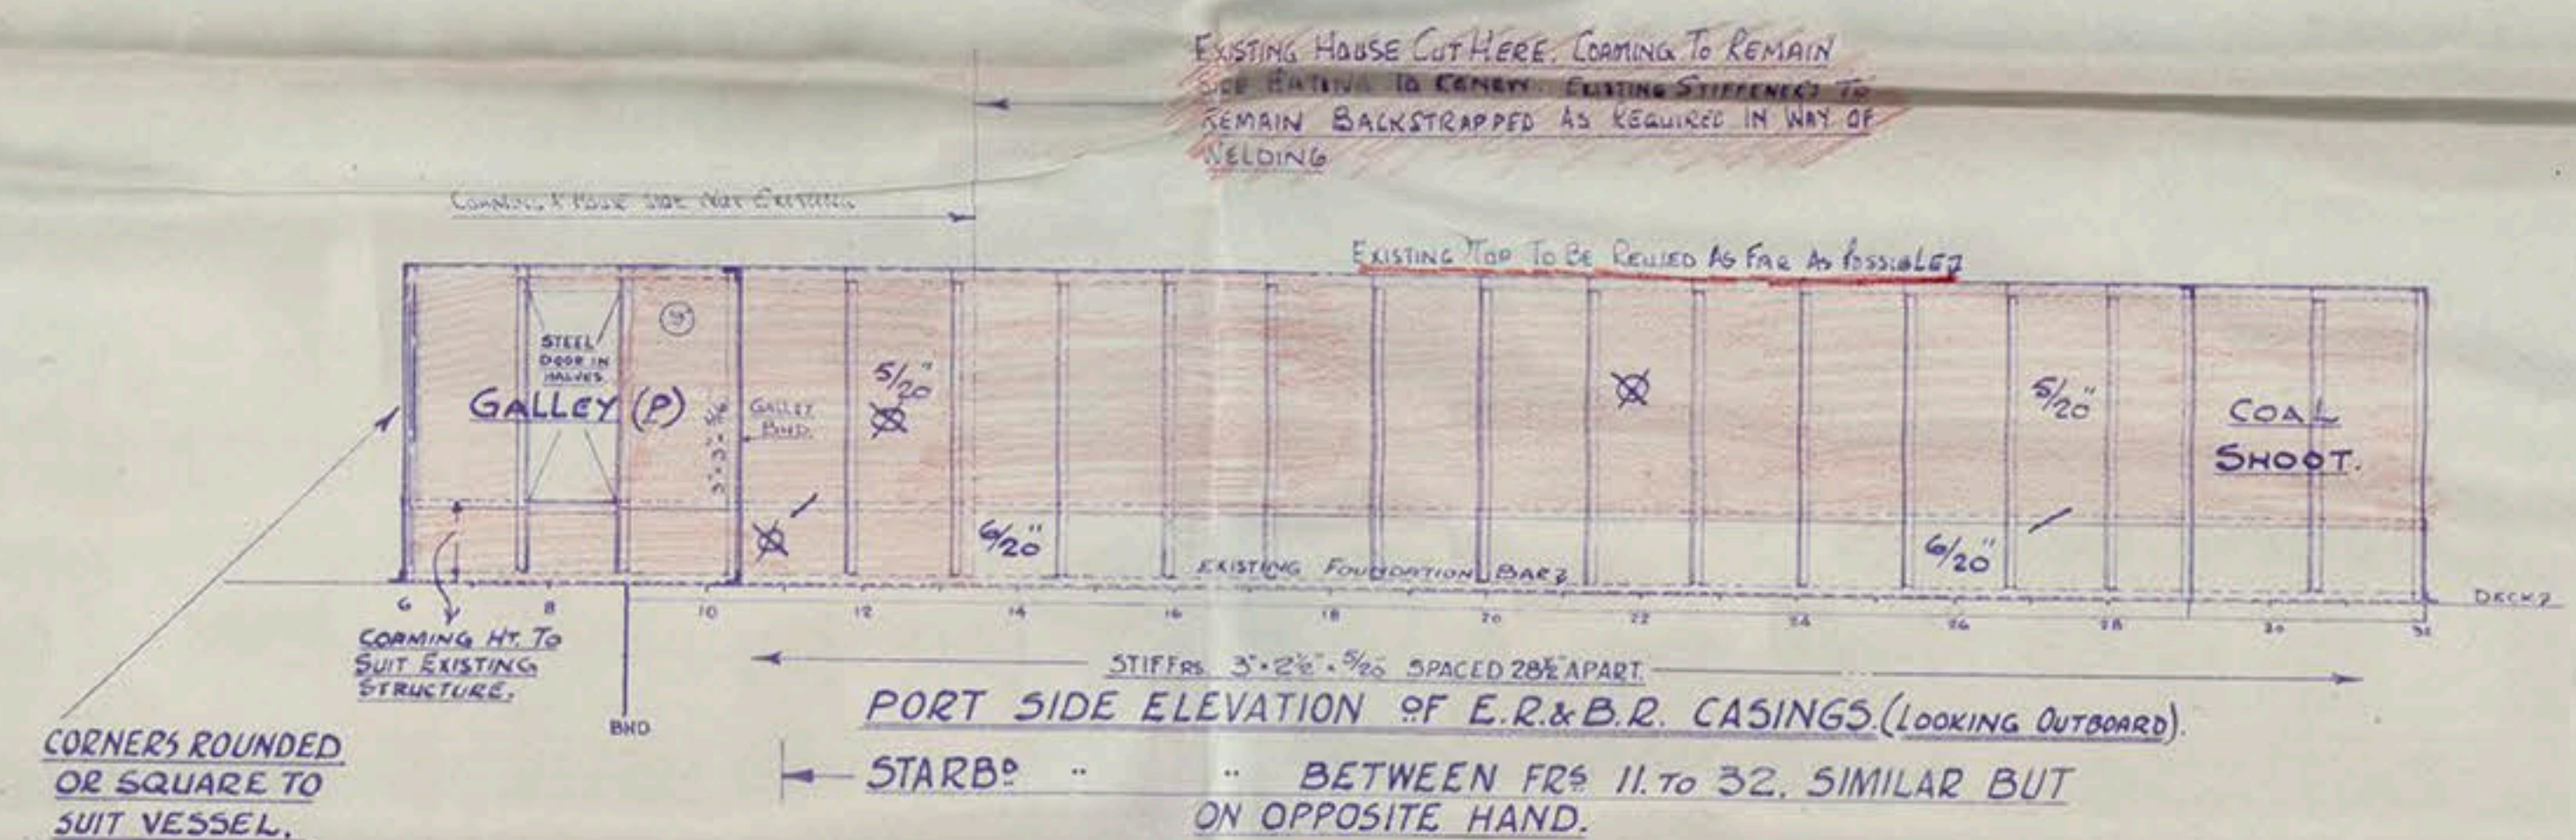 EXISTING HOUSE CUT HERE. COAMING TO REMAIN
SIDE PLATING TO RENEW. EXISTING STIFFENERS TO
REMAIN BACKSTRAPPED AS REQUIRED IN WAY OF
WELDING
COAMING & HOUSE SIDE NOT EXISTING
EXISTING TOP TO BE REUSED AS FAR AS POSSIBLE
STEEL
DOOR IN
HALVES
9"
GALLEY (P)
3" × 3" × 5/16
GALLEY
BHD.
5/20"
5/20"
COAL
SHOOT.
6/20"
6/20"
EXISTING FOUNDATION BAR
DECK
6 8 10 12 14 16 18 20 22 24 26 28 30 32
COAMING HT. TO
SUIT EXISTING
STRUCTURE.
BHD
STIFFRS. 3" × 2½" × 5/20 SPACED 28½" APART.
PORT SIDE ELEVATION OF E.R.& B.R. CASINGS.(LOOKING OUTBOARD).
CORNERS ROUNDED
OR SQUARE TO
SUIT VESSEL.
STARBD " " BETWEEN FRS 11. TO 32. SIMILAR BUT
ON OPPOSITE HAND.